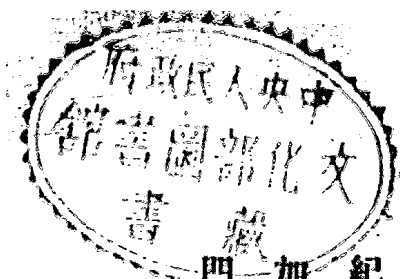 中央人民政府
文化部圖書館
藏書
紀 加 門